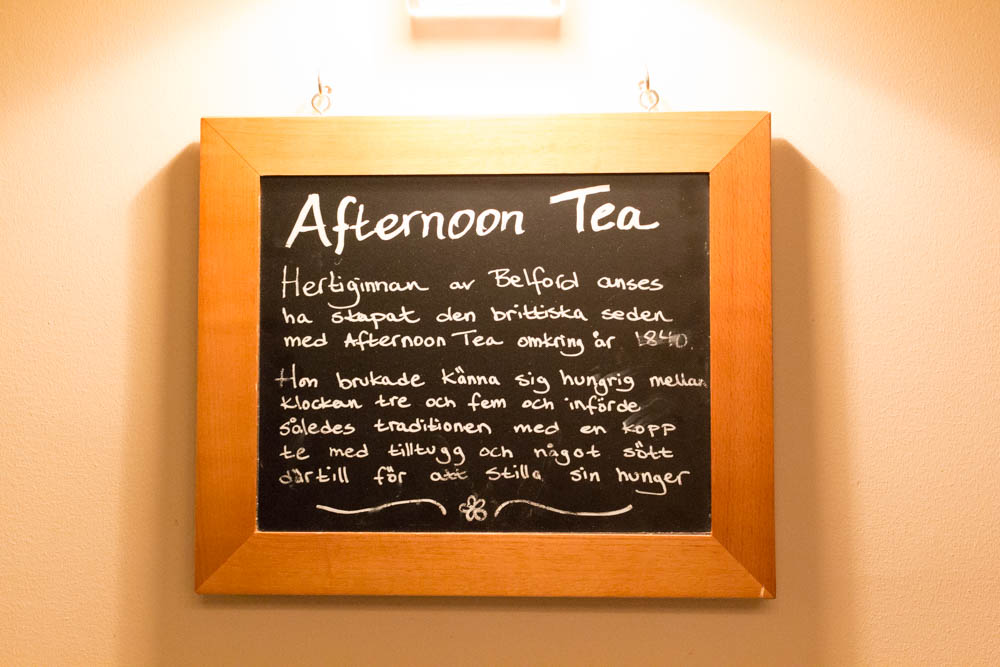 Afternoon Tea
Hertiginnan av Belford anses
ha skapat den brittiska seden
med Afternoon Tea omkring år 1840.
Hon brukade känna sig hungrig mellan
klockan tre och fem och införde
således traditionen med en kopp
te med tilltugg och något sött
därtill för att stilla sin hunger